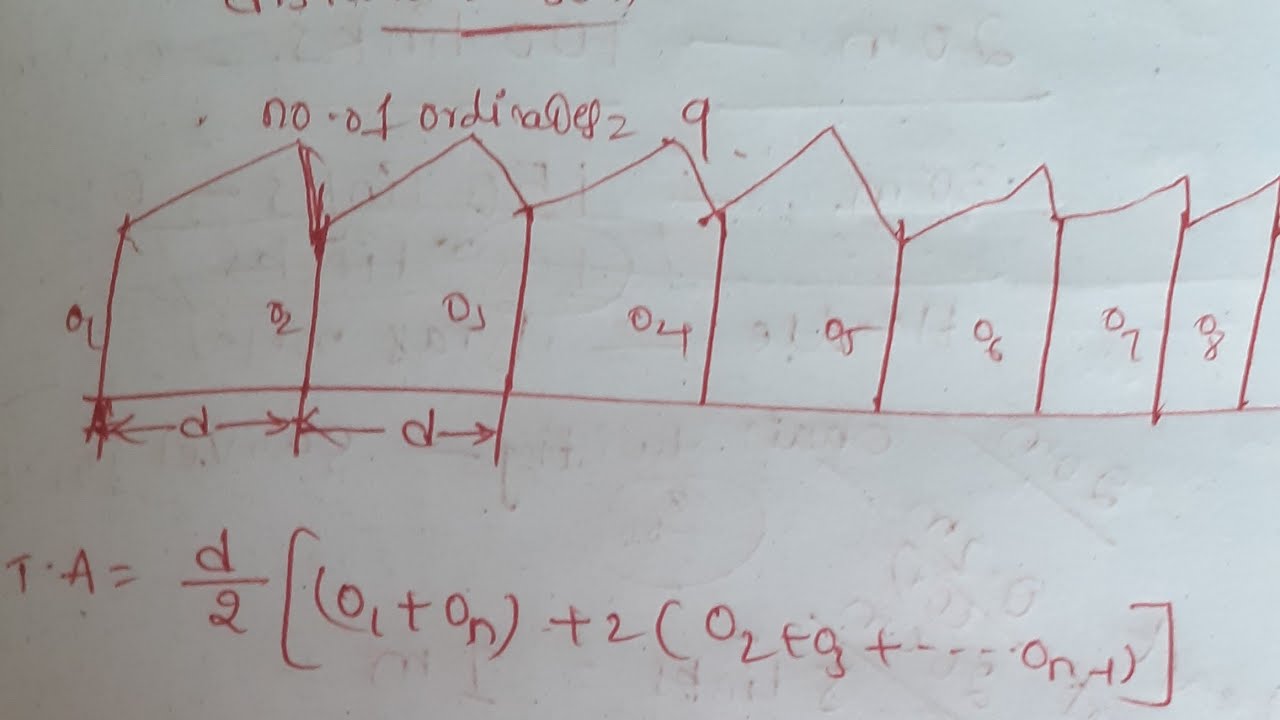 no. of ordinates = 9
O1 O2 O3 O4 O5 O6 O7 O8
d d
T.A = d/2 [(O1 + On) + 2(O2 + O3 + ---- On-1)]